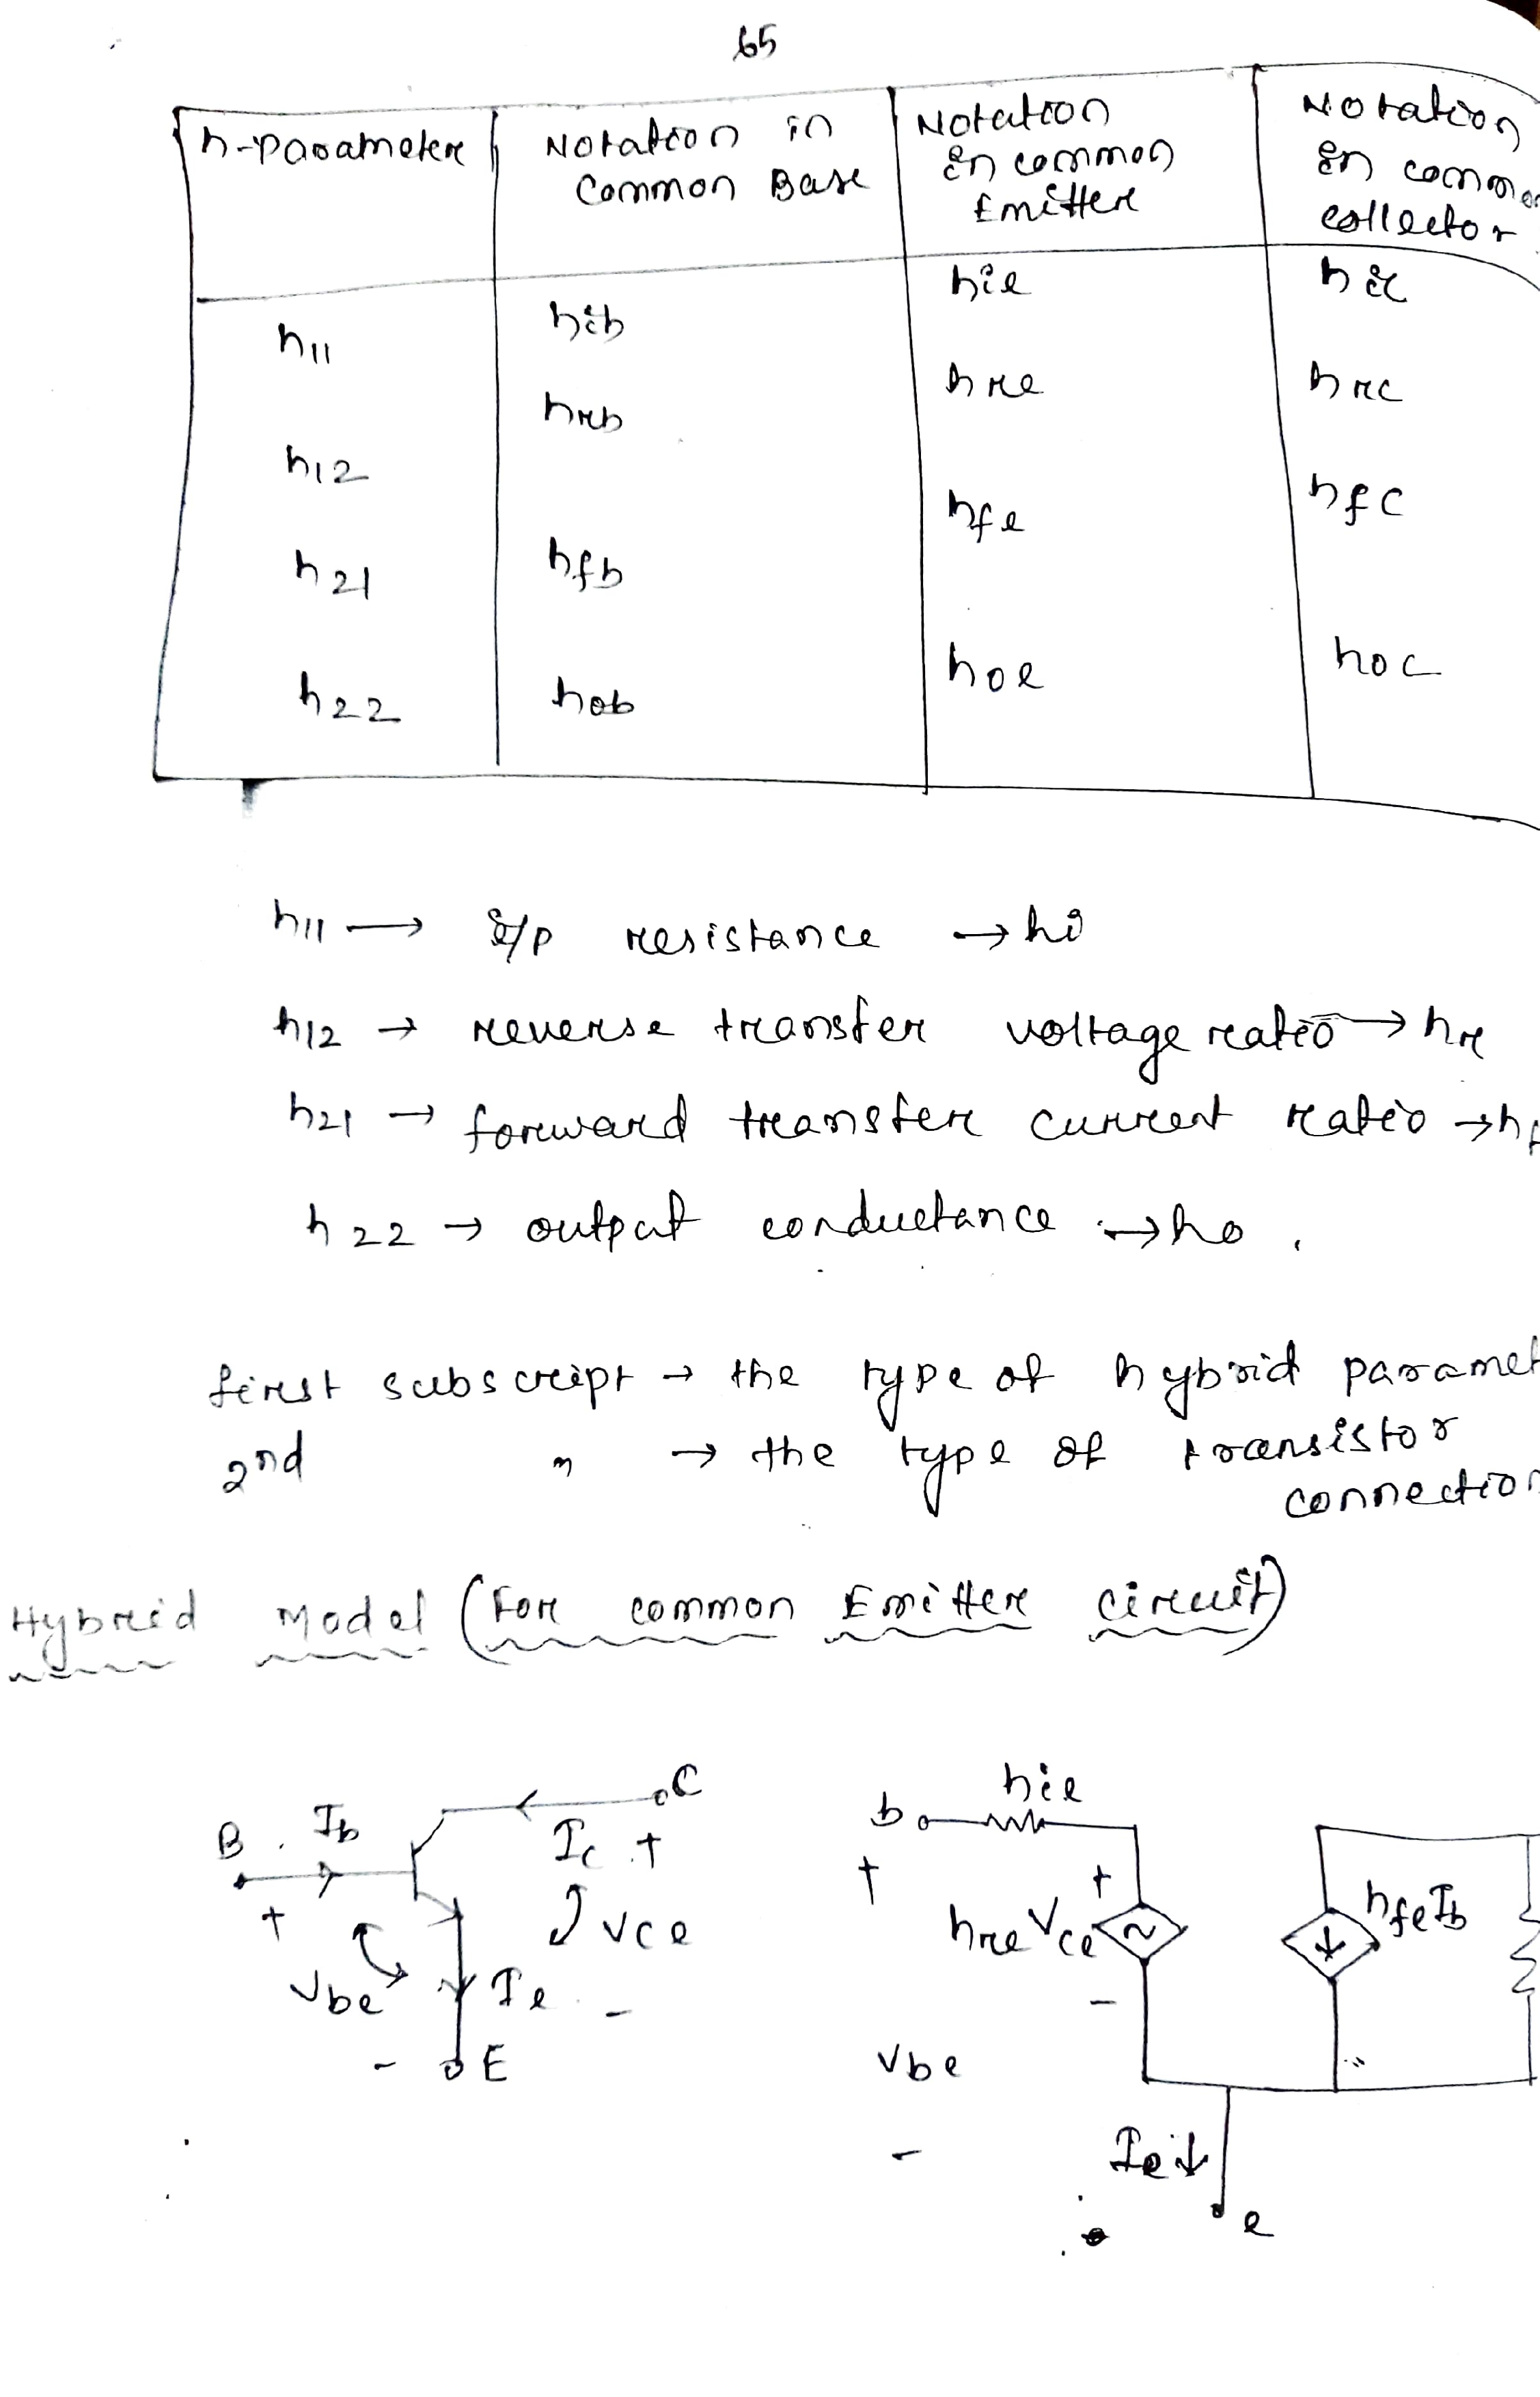 65
h-parameter
Notation in Common Base
Notation in common Emitter
Notation in collector
h11 hib hie hic
h12 hrb hre hrc
h21 hfb hfe hfc
h22 hob hoe hoc
h11 → i/p resistance → hi
h12 → reverse transfer voltage ratio → hr
h21 → forward transfer current ratio →
h22 → output conductance → ho.
first subscript → the type of hybrid
2nd " → the type of transistor
connection
Hybrid Model (For common Emitter circuit)
B Ib C
Ic +
+ Vce
Vbe Ie -
- E
b hie
+ +
hre Vce hfeIb
-
Vbe
- Ie ↓
e